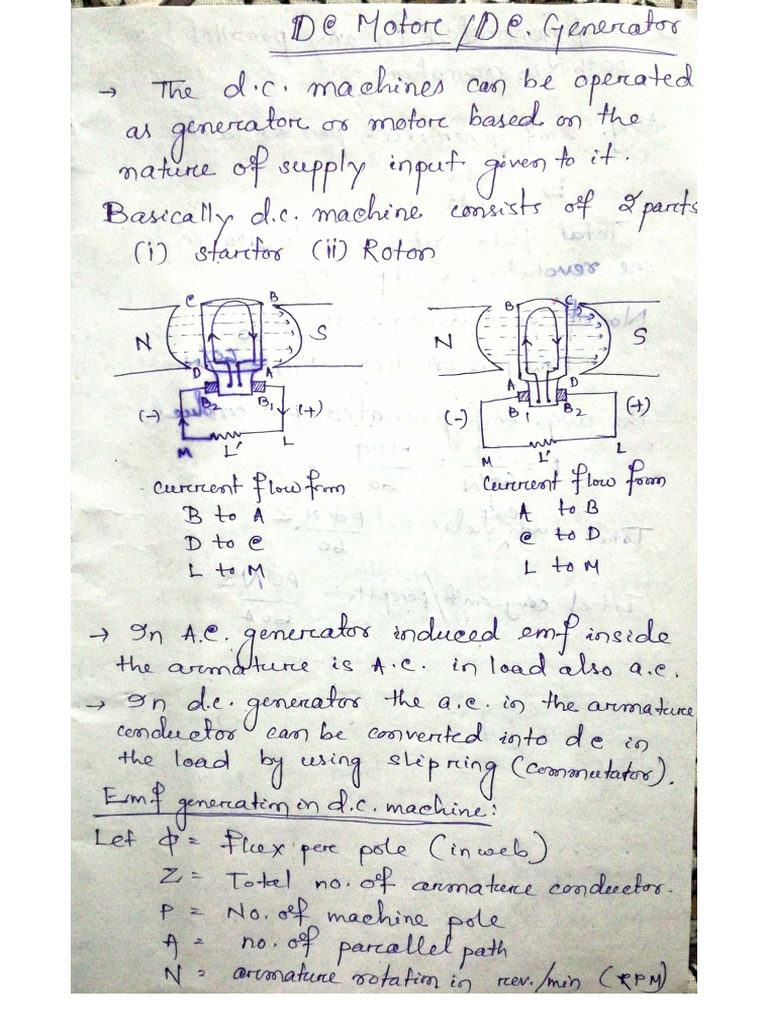 DC Motor / DC. Generator
→ The d.c. machines can be operated
as generator or motor based on the
nature of supply input given to it.
Basically d.c. machine consists of 2 parts
(i) startor (ii) Rotor
C B
N S
D A
B2 B1
(-) (+)
M L' L
B C
N S
A D
B1 B2
(-) (+)
M L' L
current flow from
B to A
D to C
L to M
current flow from
A to B
C to D
L to M
→ In A.C. generator induced emf inside
the armature is A.C. in load also a.c.
→ In d.c. generator the a.c. in the armature
conductor can be converted into dc in
the load by using slipring (commutator).
Emf generation in d.c. machine:
Let ϕ = flux per pole (in web)
Z = Total no. of armature conductor.
P = No. of machine pole
A = no. of parallel path
N = armature rotation in rev./min (RPM)